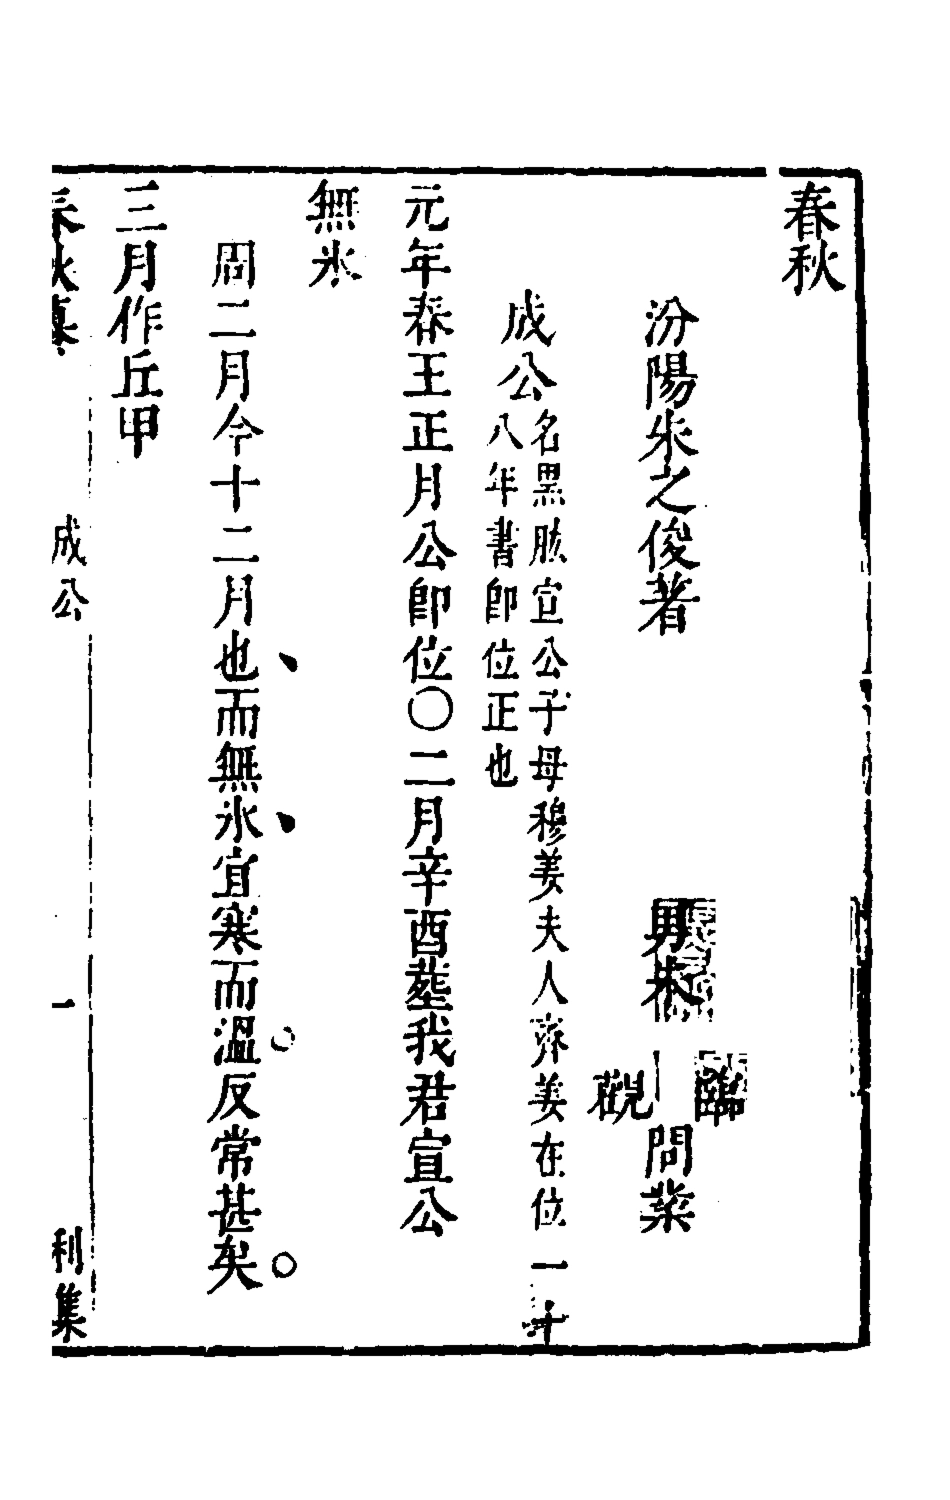 春秋
汾陽朱之俊著　男朱臨觀問業
成公名黑肱宣公子母穆姜夫人齊姜在位一十
八年書即位正也
元年春王正月公即位〇二月辛酉葬我君宣公
無氷
周二月今十二月也而無氷宜寒而溫反常甚矣
三月作丘甲
春秋纂　成公　一　利集